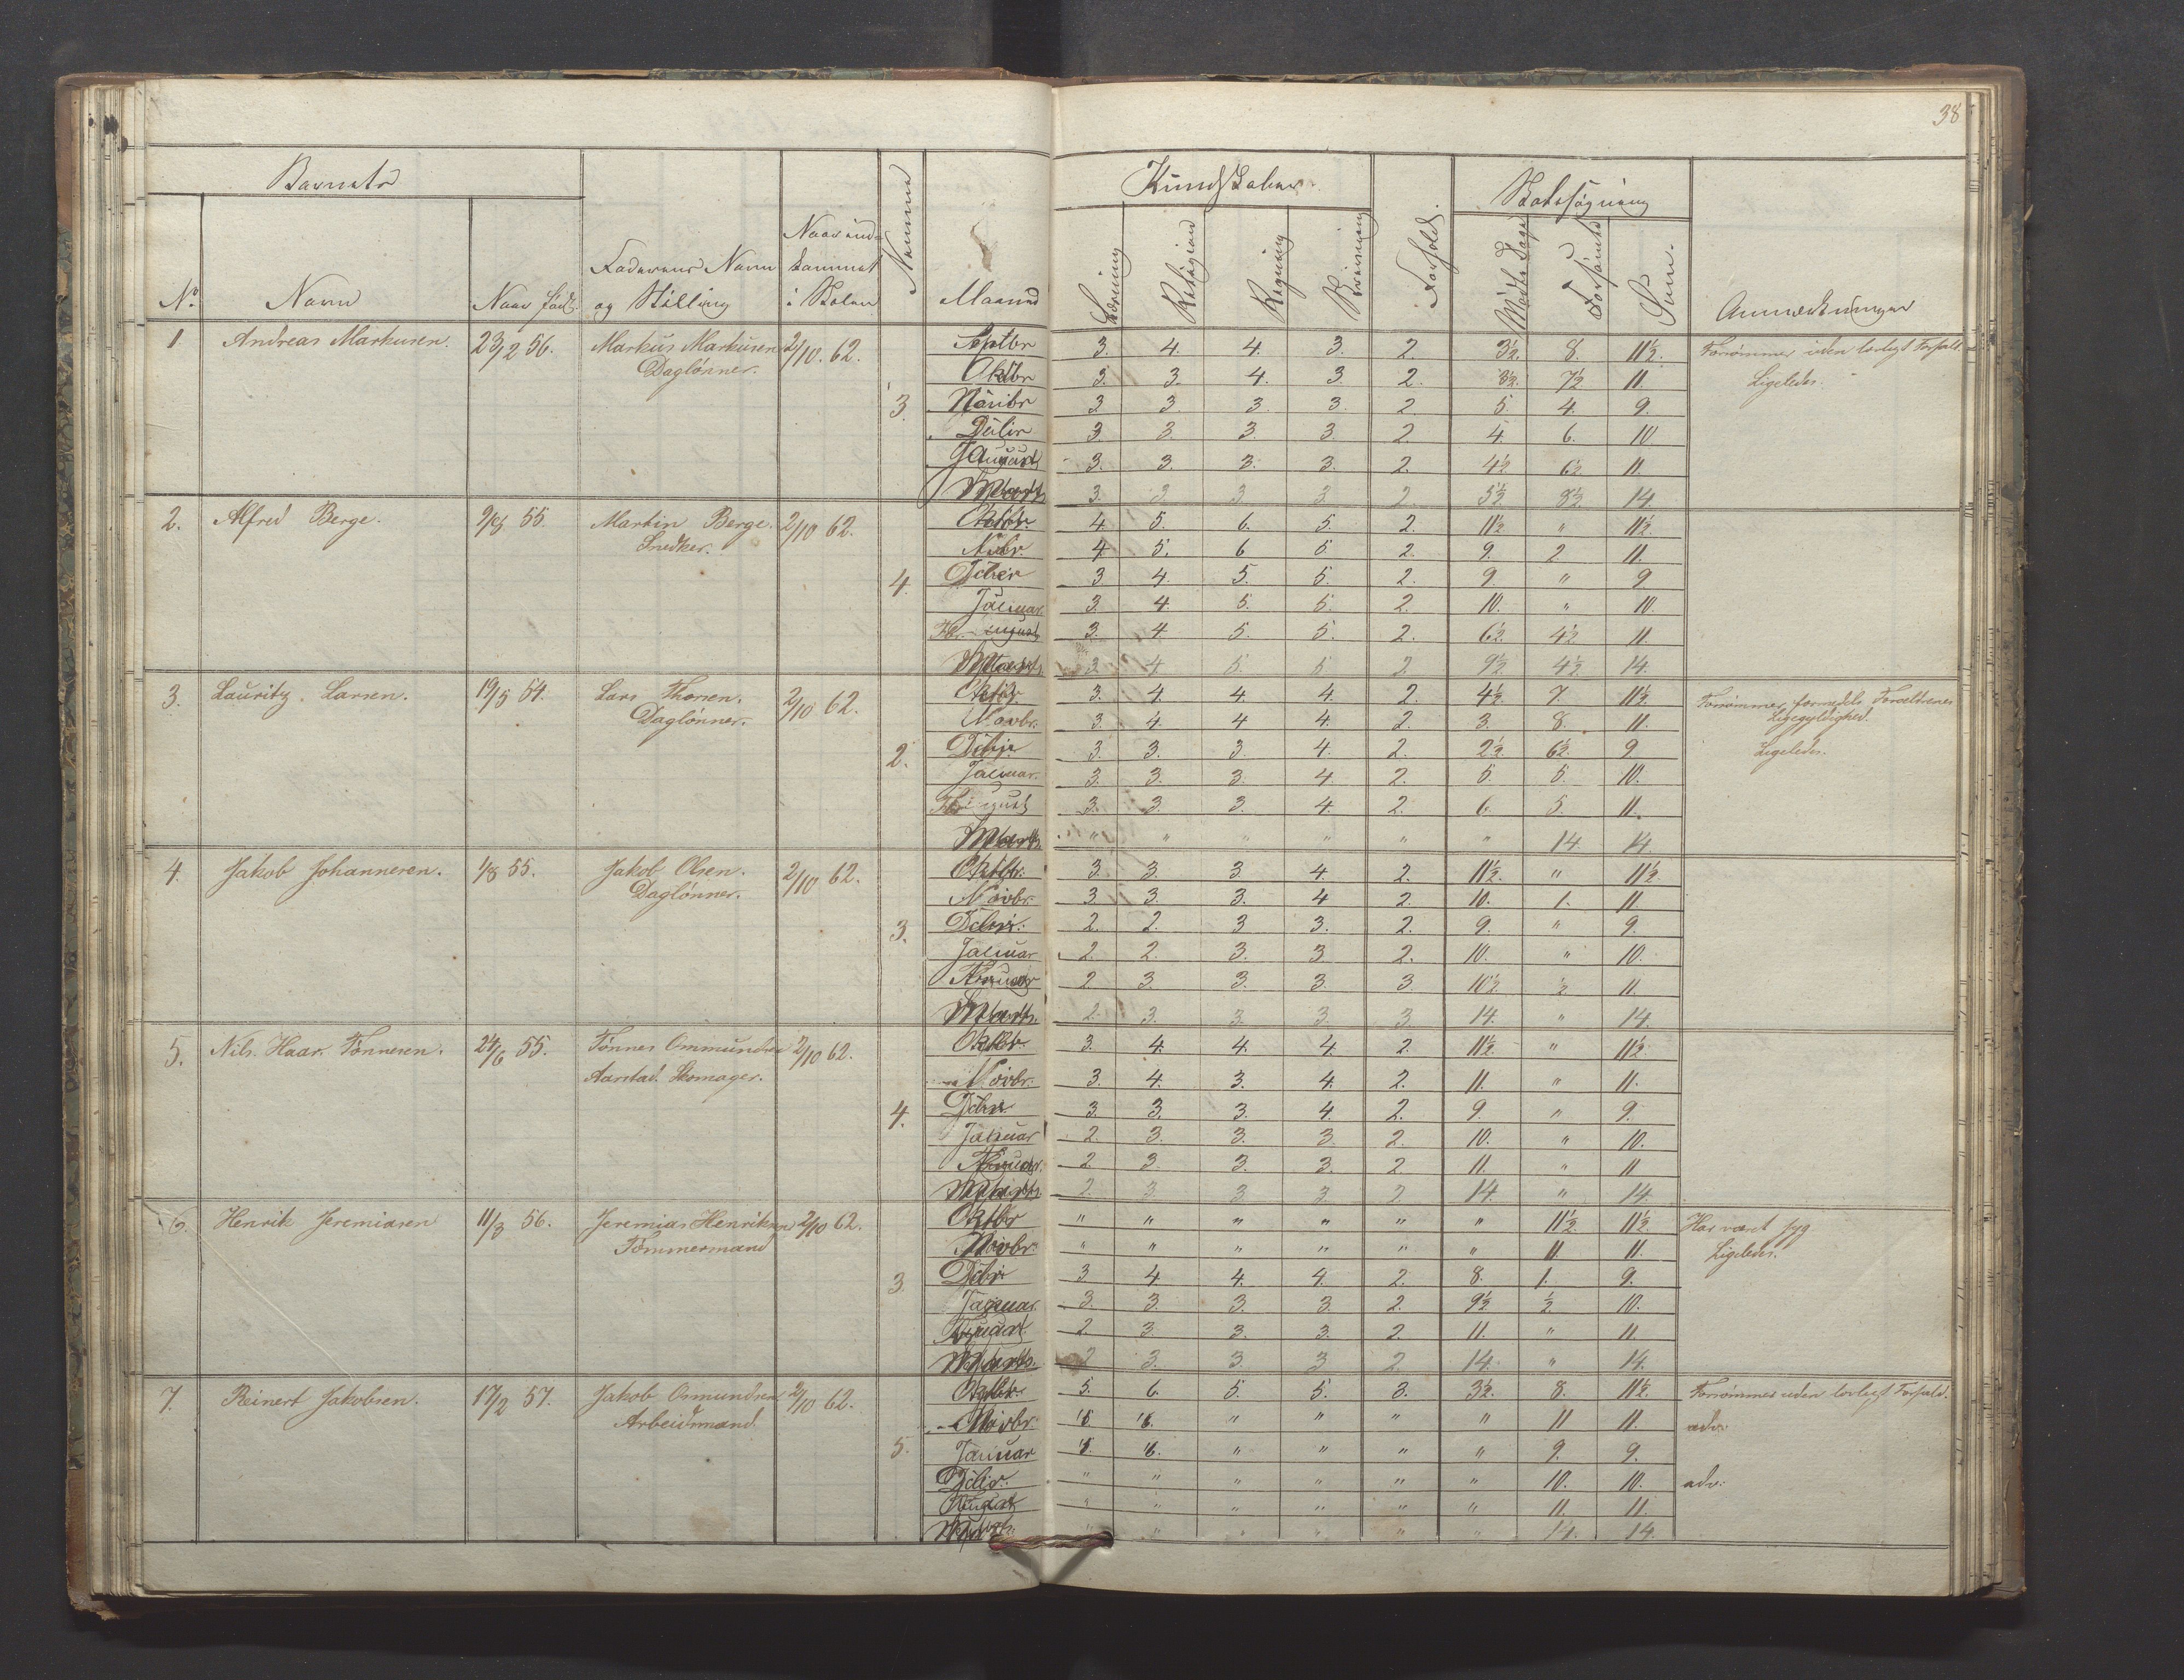 38
Barnets
Kundskaber.
Skolesøgning
No
Navn
Naar født.
Faderens Navn
og Stilling
Naar ind-
kommet
i Skolen
Nummer
Maaned
Læsning
Religion
Regning
Skrivning
Forhold.
Mødte Dage
Forsømte
Sum.
Anmærkninger
1. Andreas Markusen. 23/2 56. Markus Markusen 2/10. 62. Septbr 3. 4. 4. 3. 2. 3½. 8. 11½. Forsømmer uden lovligt Forfald.
Daglønner. Oktbr 3. 3. 4. 3. 2. 3½. 7½ 11. Ligeledes.
3. Novbr 3 3. 3. 3. 2 5. 4. 9.
3. 3. 3. 3. 2. 4. 6. 10
3. 3. 3. 3. 2. 4½ 6½ 11.
Marts 3. 3 3 3 2 5½ 8½ 14.
2. Alfred Berge. 9/8 55. Martin Berge. 2/10 62. Oktbr. 4. 5. 6. 5. 2. 11½ " 11½.
Snedker. Nvbr. 4. 5. 6 5. 2. 9. 2 11.
4. Dcbr 3 4. 5. 5. 2. 9. " 9
Januar 3. 4. 5. 5. 2. 10. " 10.
3. 4 5. 5. 2. 6½ 4½ 11.
Marts 3 4 5 5 2 9½ 4½ 14.
3. Lauritz Larsen. 19/5 54. Lars Thorsen. 2/10 62. Oktbr. 3. 4. 4. 4. 2. 4½. 7. 11½. Forsømmer formedels Forældrenes
Daglønner. Novbr. 3. 4. 4 4. 2. 3. 8. 11. Ligegyldighed.
2. Dcbr. 3. 3. 3. 4. 2. 2½. 6½. 9 Ligeledes.
Januar. 3. 3. 3. 4 2. 5. 5. 10.
3. 3. 3. 4. 2. 6. 5. 11.
Marts " " " " " " 14 14.
4. Jakob Johannesen. 1/8 55. Jakob Olsen. 2/10 62. Oktbr. 3. 3. 3. 4. 2. 11½. " 11½.
Daglønner. Novbr. 3. 3. 3. 4 2. 10. 1. 11.
3. Dcbr. 2. 2. 3 3. 2. 9. " 9.
Januar 2. 2. 3. 3. 2. 10. " 10.
Februar 2. 3. 3. 3. 3. 10½. ½ 11.
Marts. 2. 3. 3. 3. 3. 14. " 14.
5. Nils. Haar. Tønnesen. 24/6 55. Tønnes Ommundsen 2/10 62. Oktbr. 3. 4. 4. 4. 2. 11½. " 11½
Aarstad. Skomager. Novbr. 3. 4. 3. 4. 2. 11. " 11.
4. Dcbr 3. 3. 3. 4. 2. 9. " 9.
Januar 2. 3. 3. 3. 2. 10. " 10.
Februar. 2. 3. 3. 3. 2 11. " 11
Marts 2. 3. 3 3 2. 14. " 14.
6. Henrik Jeremiasen 11/3 56. Jeremias Henriksen 2/10 62. Oktbr " " " " " " 11½ 11½. Har været syg
Tømmermand Novbr. " " " " " " 11. 11. Ligeledes.
3. Dcbr. 3 4 4. 4. 2. 8. 1. 9.
Januar. 3. 3. 3. 3. 2. 9½. ½ 10.
Februar. 2. 3. 3. 3. 2. 11. " 11.
Marts. 2 3. 3. 3 2. 14. " 14.
7. Reinert Jakobsen. 17/2 57. Jakob Osmundsen 2/10 62. Oktbr. 5. 6. 5. 5. 3. 3½. 8. 11½. Forsømmes uden lovligt Forfald.
Arbeidsmand Novbr. 5. 6. " " " " 11 11.
5. Januar 5. 6. " " " " 9. 9.
Dcbr. " " " " " " 10. 10.
" " " " " " 11. 11.
Marts. " " " " " " 14. 14.